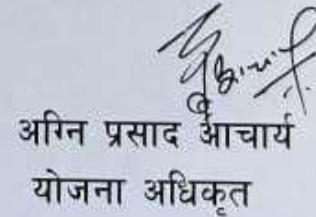 अग्नि प्रसाद आचार्य
योजना अधिकृत